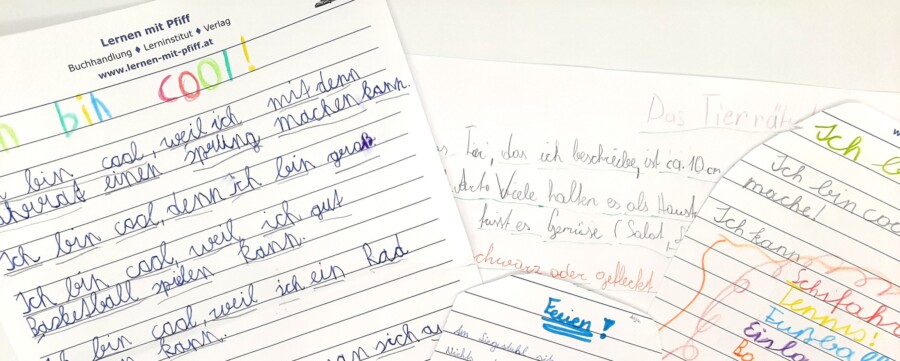 Lernen mit Pfiff
Buchhandlung ♦ Lerninstitut ♦ Verlag
www.lernen-mit-pfiff.at
bin cool!
bin cool, weil ich mit denn
einen sprung machen kann.
Ich bin cool, denn ich bin groß
Ich bin cool, weil ich gut
Basketball spielen kann.
Ich bin cool, weil ich ein Rad
kann.
man sich
Das Tierrät
, das ich beschreibe, ist ca. 10 cm
Viele halten es als Haust
es Gemüse (Salat
schwarz oder gefleckt.
Ferien!
Ich b
Ich bin coo
mache!
Ich kann
Schifahr
Tennis!
Fußball
Eisla